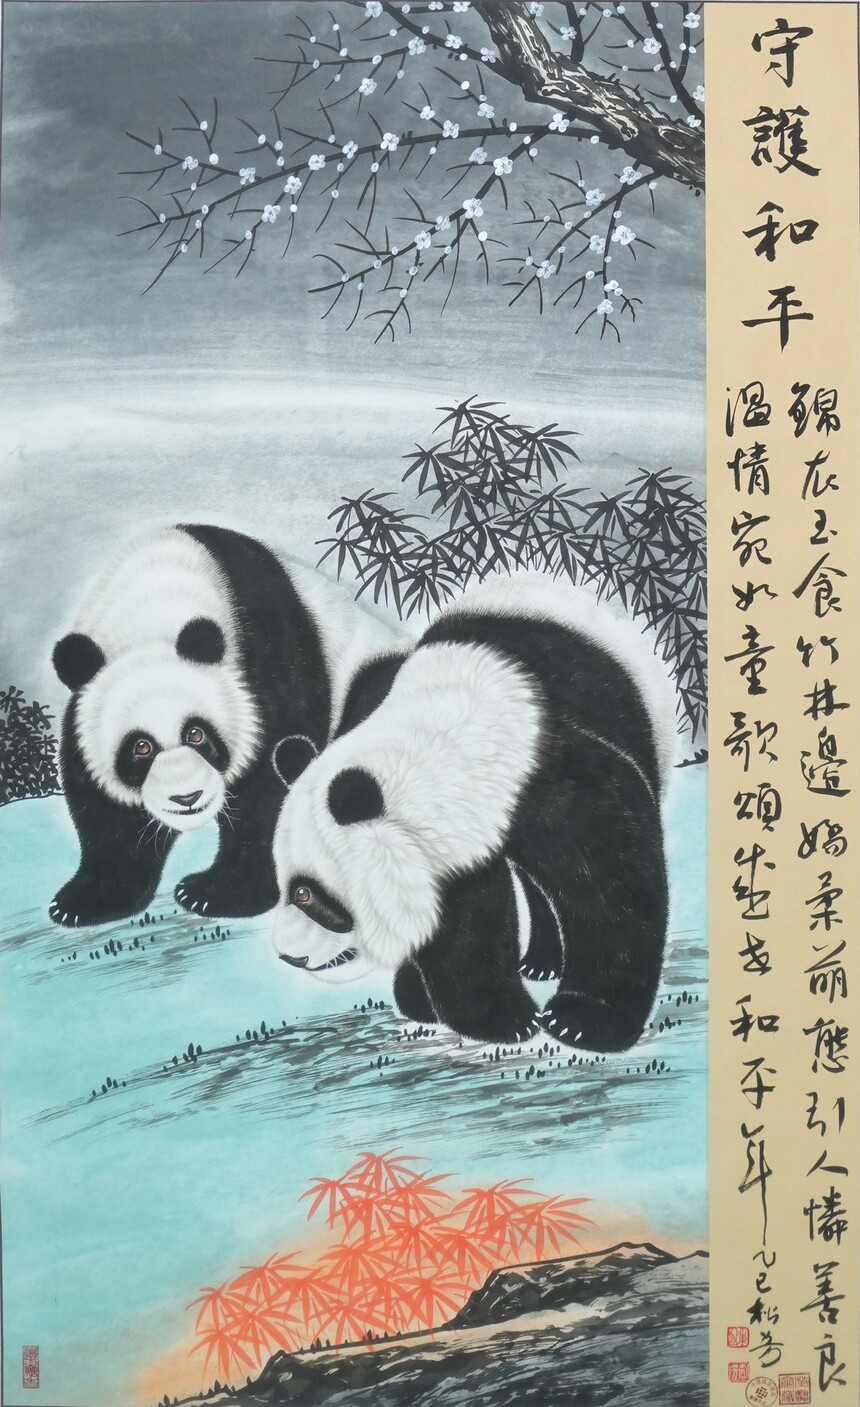 守護和平
錦衣玉食竹林邊嬌柔萌態引人憐善良
溫情宛如童歌頌盛世和平年
乙巳松芳